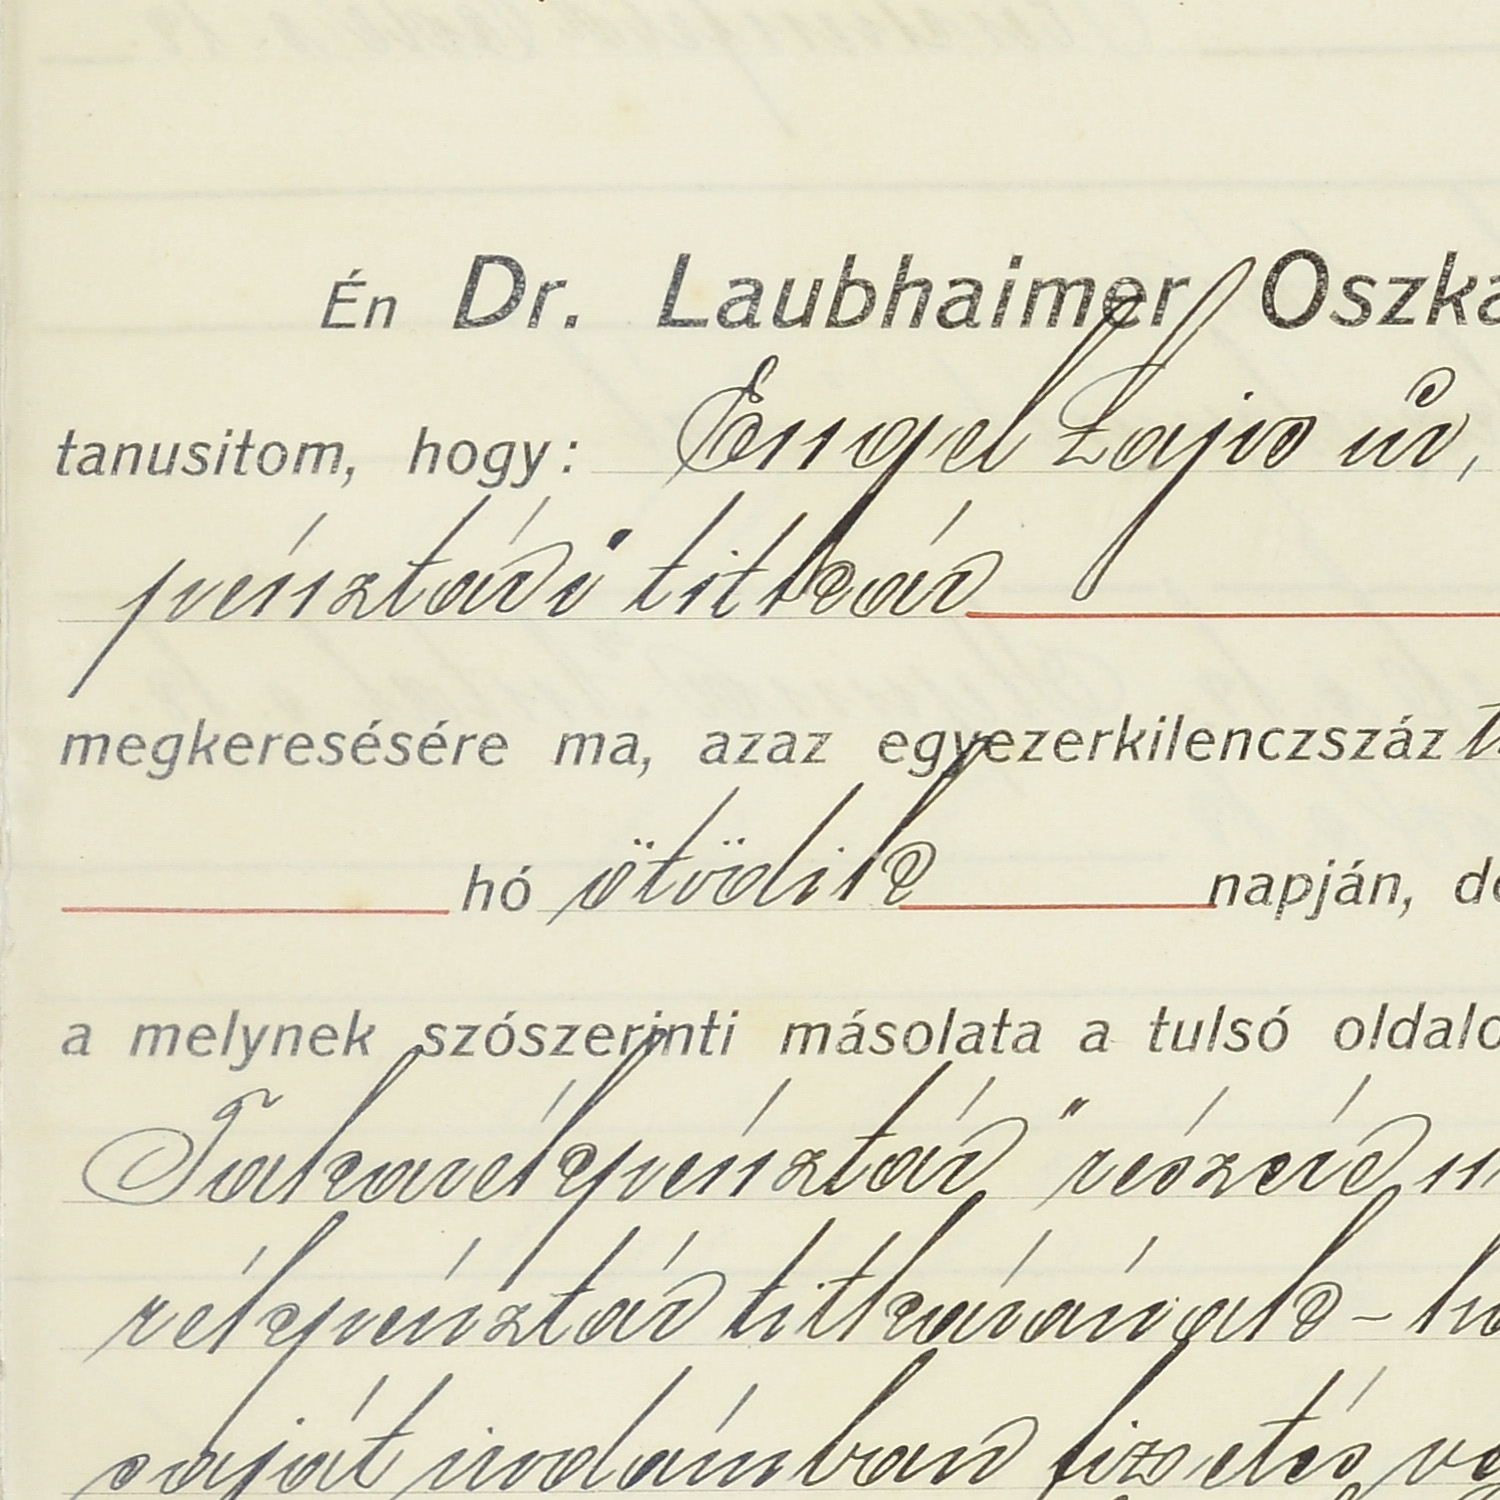 Én Dr. Laubhaimer Oszká
tanusitom, hogy: Engel Lajos úr,
pénztári titkár
megkeresésére ma, azaz egyezerkilenczszáz
hó ötödik napján, de
a melynek szószerinti másolata a tulsó oldalo
Takarékpénztár" részéről
rékpénztár titkárának –
saját irodámban fizetés